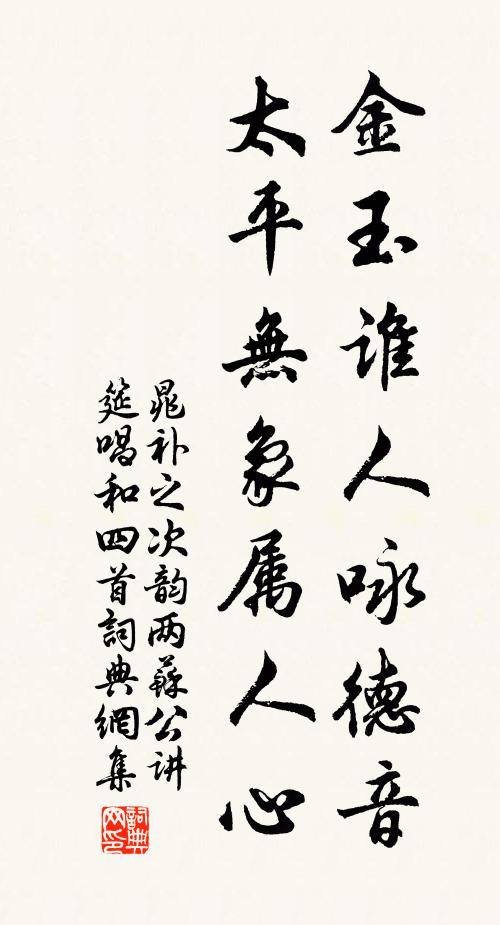 金玉谁人咏德音
太平無象属人心
晁补之次韵两蘇公讲
筵唱和四首詞典網集
詞典
网印